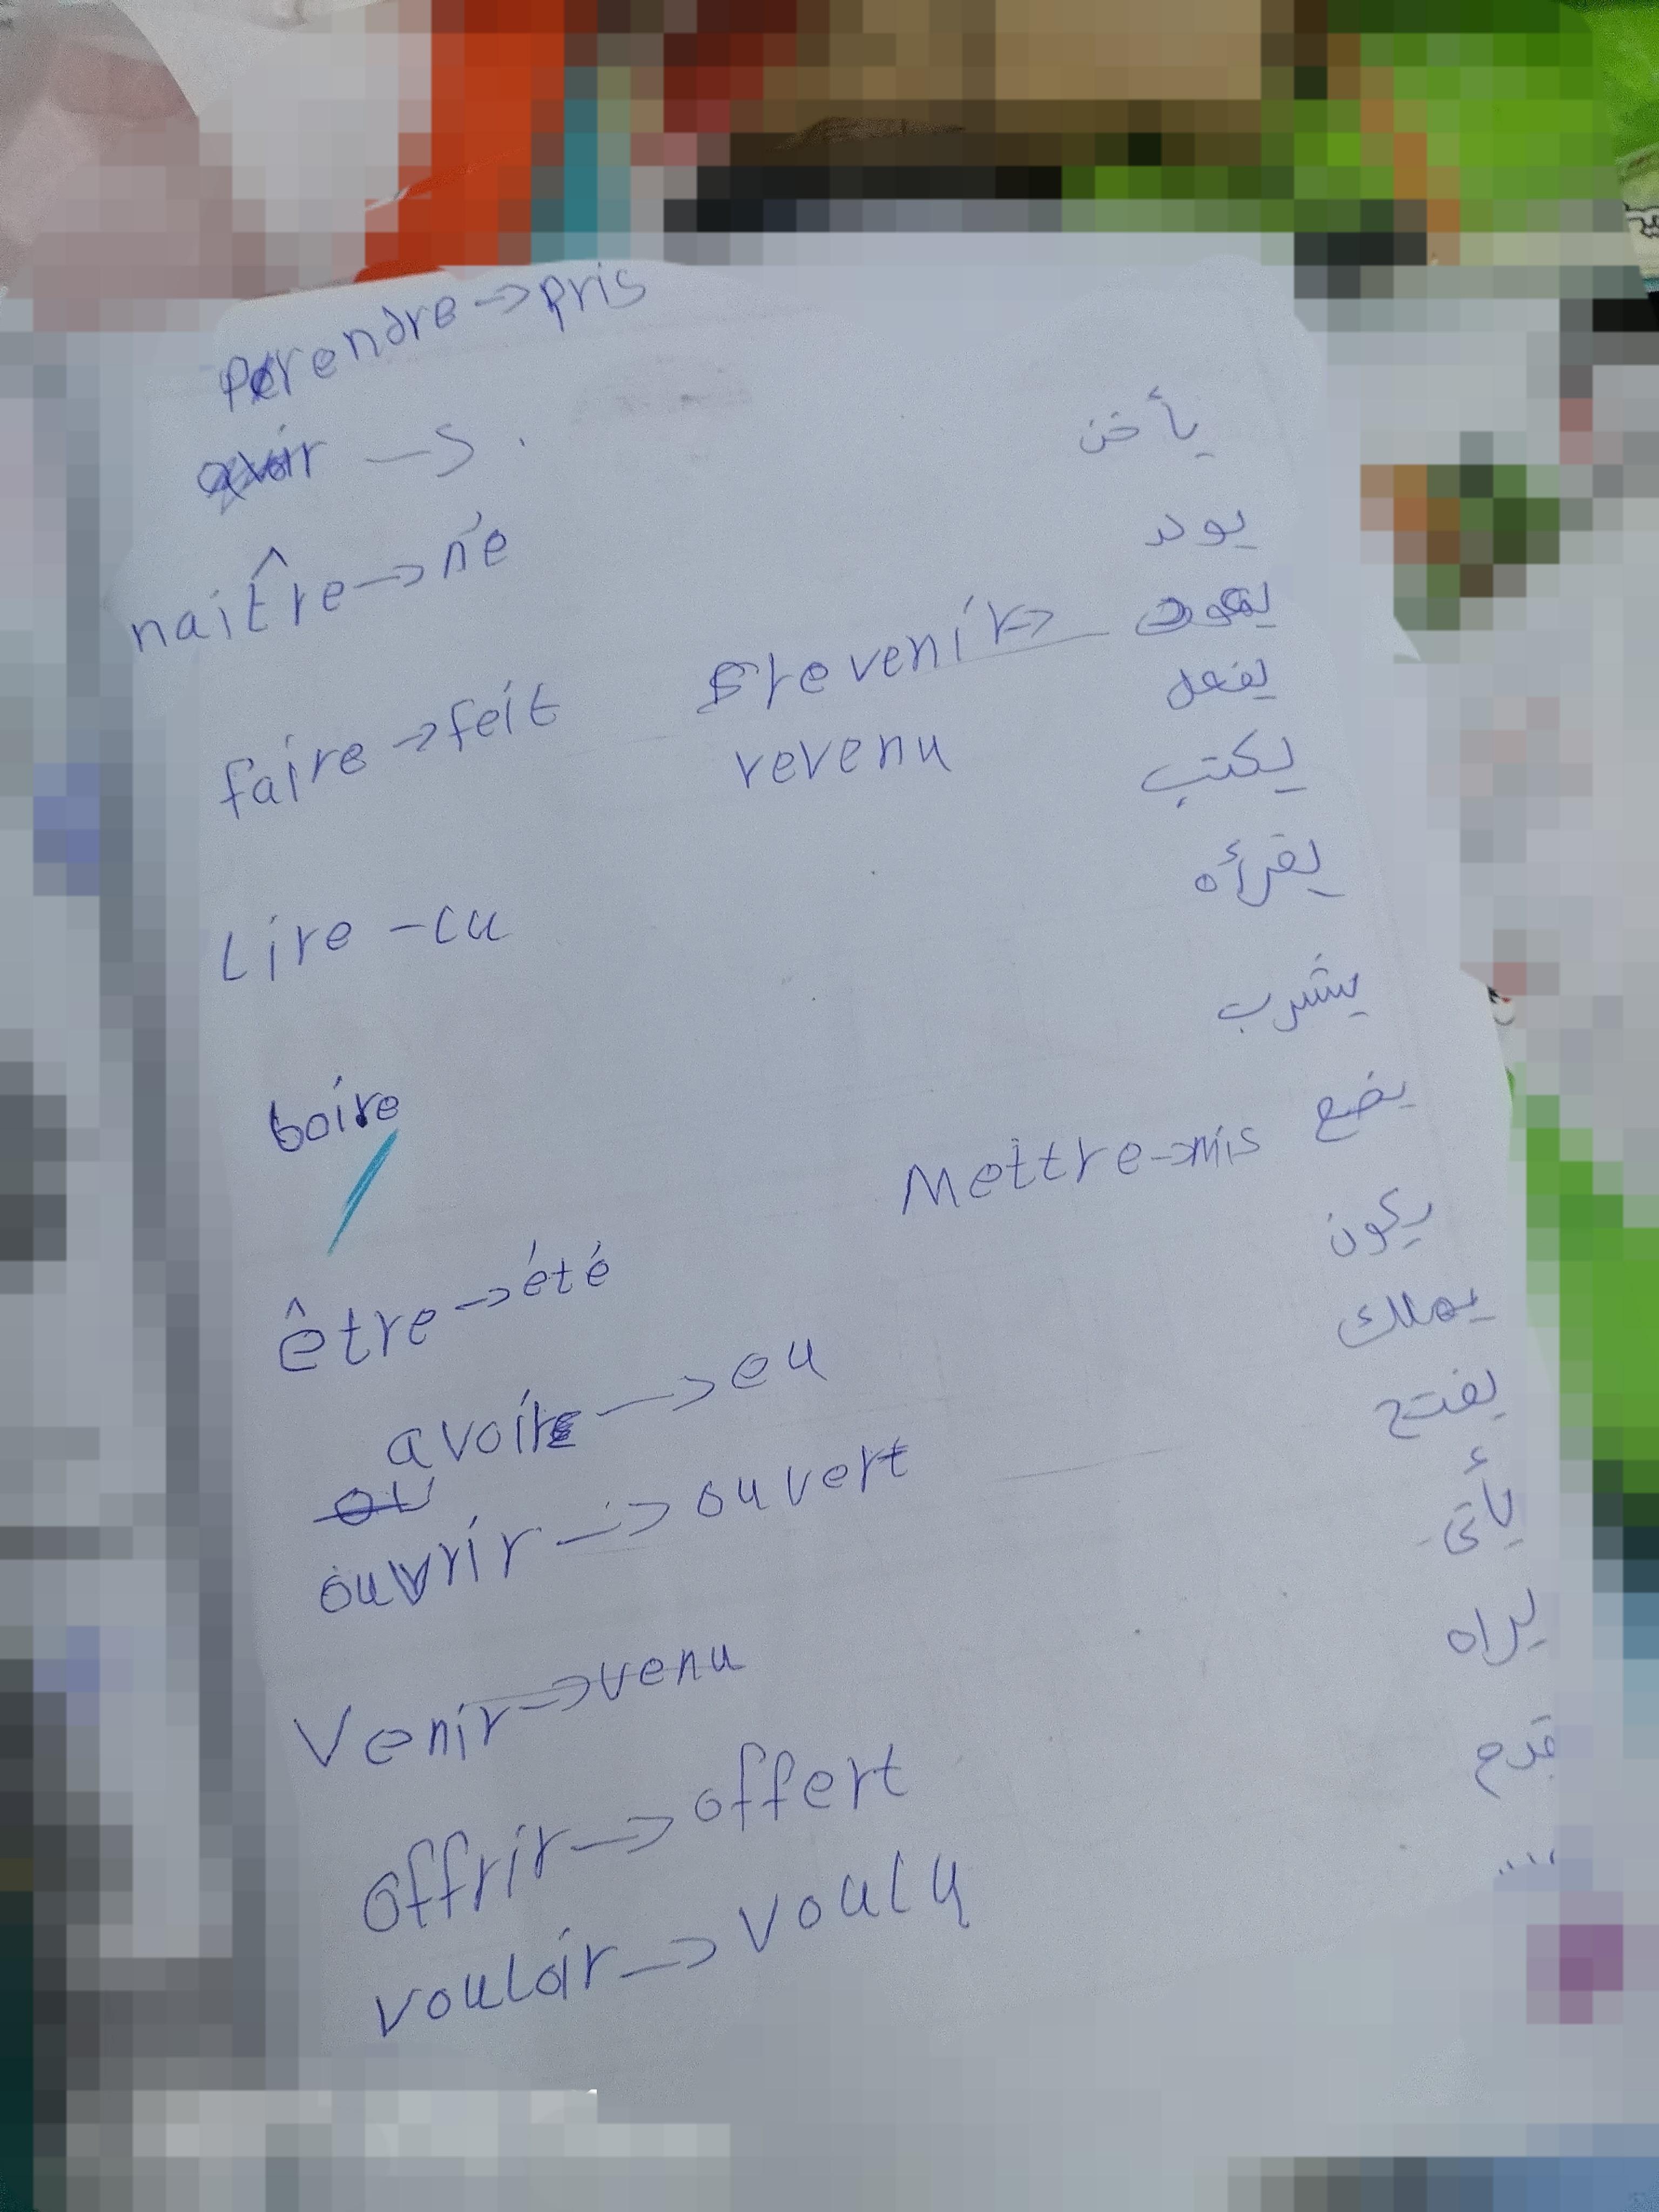 prendre → pris
يأخذ
avoir → .
naitre → né
يولد
revenir →
يعود
faire → feit
يفعل
revenu
يكتب
يقرأه
Lire - Lu
يشرب
boire
يضع
Mettre → mis
يكون
être → été
يملك
avoir → eu
يفتح
ou
ouvrir → ouvert
يأتى
يراه
Venir → venu
قدم
offrir → offert
....
vouloir → voulu